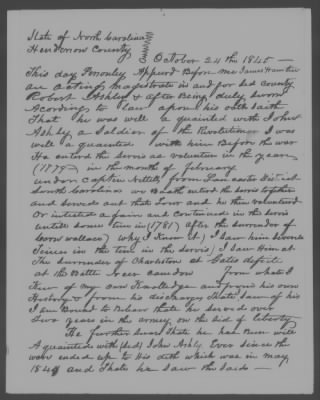 State of North Carolina
Henderson County
October 24th 1845 —
This day Personley Appeard Before me James Hamilton
an acting magistrate in and for sed County
Robert Ashley & after Being duly sworn
Acording to law apon his oath saith
That he was well a quainted with John
Ashly, a Soldier of the Revolutioner I was
well a quainted with him Before the war
He enterd the servis as valunteer in the year
(1777) in the month of february
under Captin from Lancaster District
South Carolina we Boath enterd the servis together
and served out that tour and he then valunteerd
Or inlisted a gain and continued in the servis
untill some time in (1781) after the surrender of
Corn wallace) Why I Know it) I saw him several
Times in the time in the servis) I saw Him at
The surrender of Charleston at Gates defeit
at the Battle Near camdon From what I
Know of my own Knolledge and from his own
History & from his discharges that I saw of his
I am Bound to Beleave that he served over
Two years in the army on the sid of Liberty
He further swar that he has Bun well
A quainted with (sd) John Ashly Ever since the
war ended up to His deth which was in may
184 and that he saw the said —